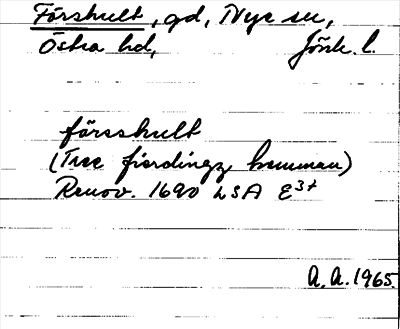 Förshult, gd, Nye sn,
Östra hd, Jönk. l.
försshult
(Tree fierdingz hemman)
Renov. 1690 LSA E3+
A. A. 1965.